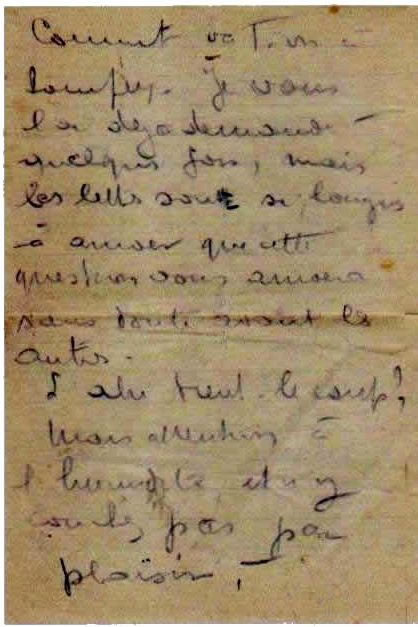 Comment va t. on à
Longwy. Je vous
l'ai déja demandé
quelques fois, mais
les letts sont si longues
à arriver que cette
question vous arrivera
sans doute avant les
autres.
L'abri tient le coup?
Mais attention à
l'humidité, et n'y
couchez pas par
plaisir,